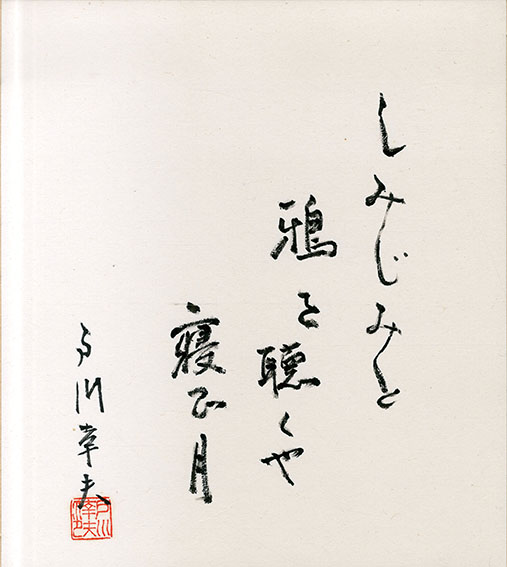 しみじみと
鴉を聴くや
寝正月
戸川幸夫
戸川幸夫